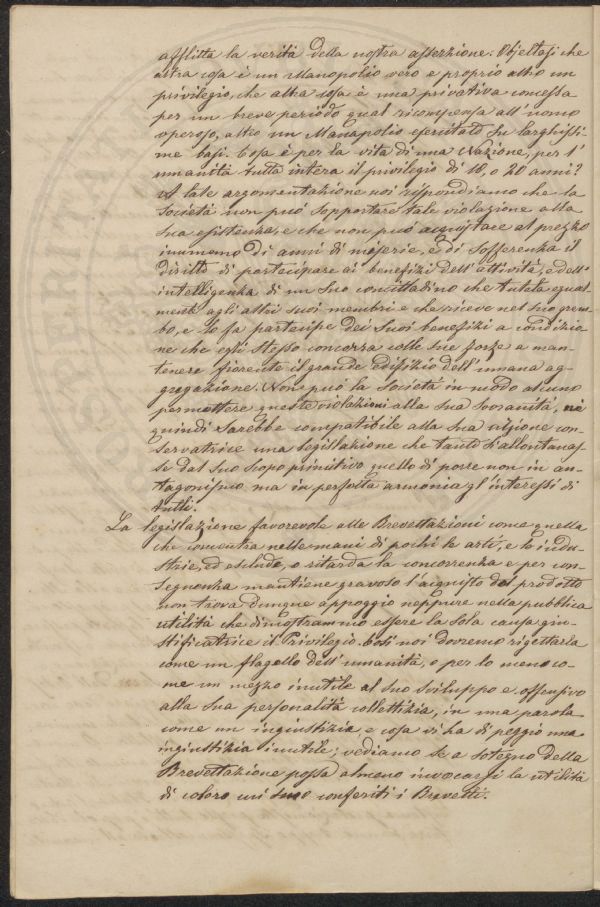 afflitta la verità della nostra asserzione. Objettasi che
altra cosa è un Manopolio vero e proprio altro un
privilegio, che altra cosa è una privativa concessa
per un breve periodo qual ricompensa all'uomo
operoso, altro un Manapolio esercitato su larghissi-
me basi. Cosa è per la vita di una Nazione, per l'
umanità tutta intera il privilegio di 10, o 20 anni?
A tale argomentazione noi rispondiamo che la
Società non può sopportare tale violazione alla
sua esistenza, e che non può acquistare al prezzo
inumano di anni di miserie, e di sofferenza il
diritto di partecipare ai benefizi dell'attività, e dell'
intelligenza di un suo concittadino che tutela egual-
mente agli altri suoi membri e che riceve nel suo grem-
bo, e lo fa partecipe dei suoi benefizi a condizio-
ne che egli stesso concorra colle sue forze a man-
tenere fiorente il grande edifizio dell'umana ag-
gregazione. Non può la Società in modo alcuno
permettere queste violazioni alla sua sovranità, nè
quindi sarebbe compatibile alla sua ragione con-
servatrice una legislazione che tanto s'allontanas-
se dal suo scopo primitivo quello di porre non in an-
tagonismo ma in perfetta armonia gl'interessi di
tutti.
La legislazione favorevole alle Brevettazioni come quella
che concentra nelle mani di pochi le arti, e le indu-
strie, ed esclude, o ritarda la concorrenza e per con-
seguenza mantiene gravoso l'acquisto del prodotto
non trova dunque appoggio neppure nella pubblica
utilità che dimostrammo essere la sola causa giu-
stificatrice il Privilegio. Così noi dovremo rigettarla
come un flagello dell'umanità, o per lo meno co-
me un mezzo inutile al suo sviluppo e offensivo
alla sua personalità collettizia, in una parola
come un ingiustizia, e cosa vi ha di peggio una
ingiustizia inutile; vediamo se a sostegno della
Brevettazione possa almeno invocarsi la utilità
di coloro cui sono conferiti i Brevetti.